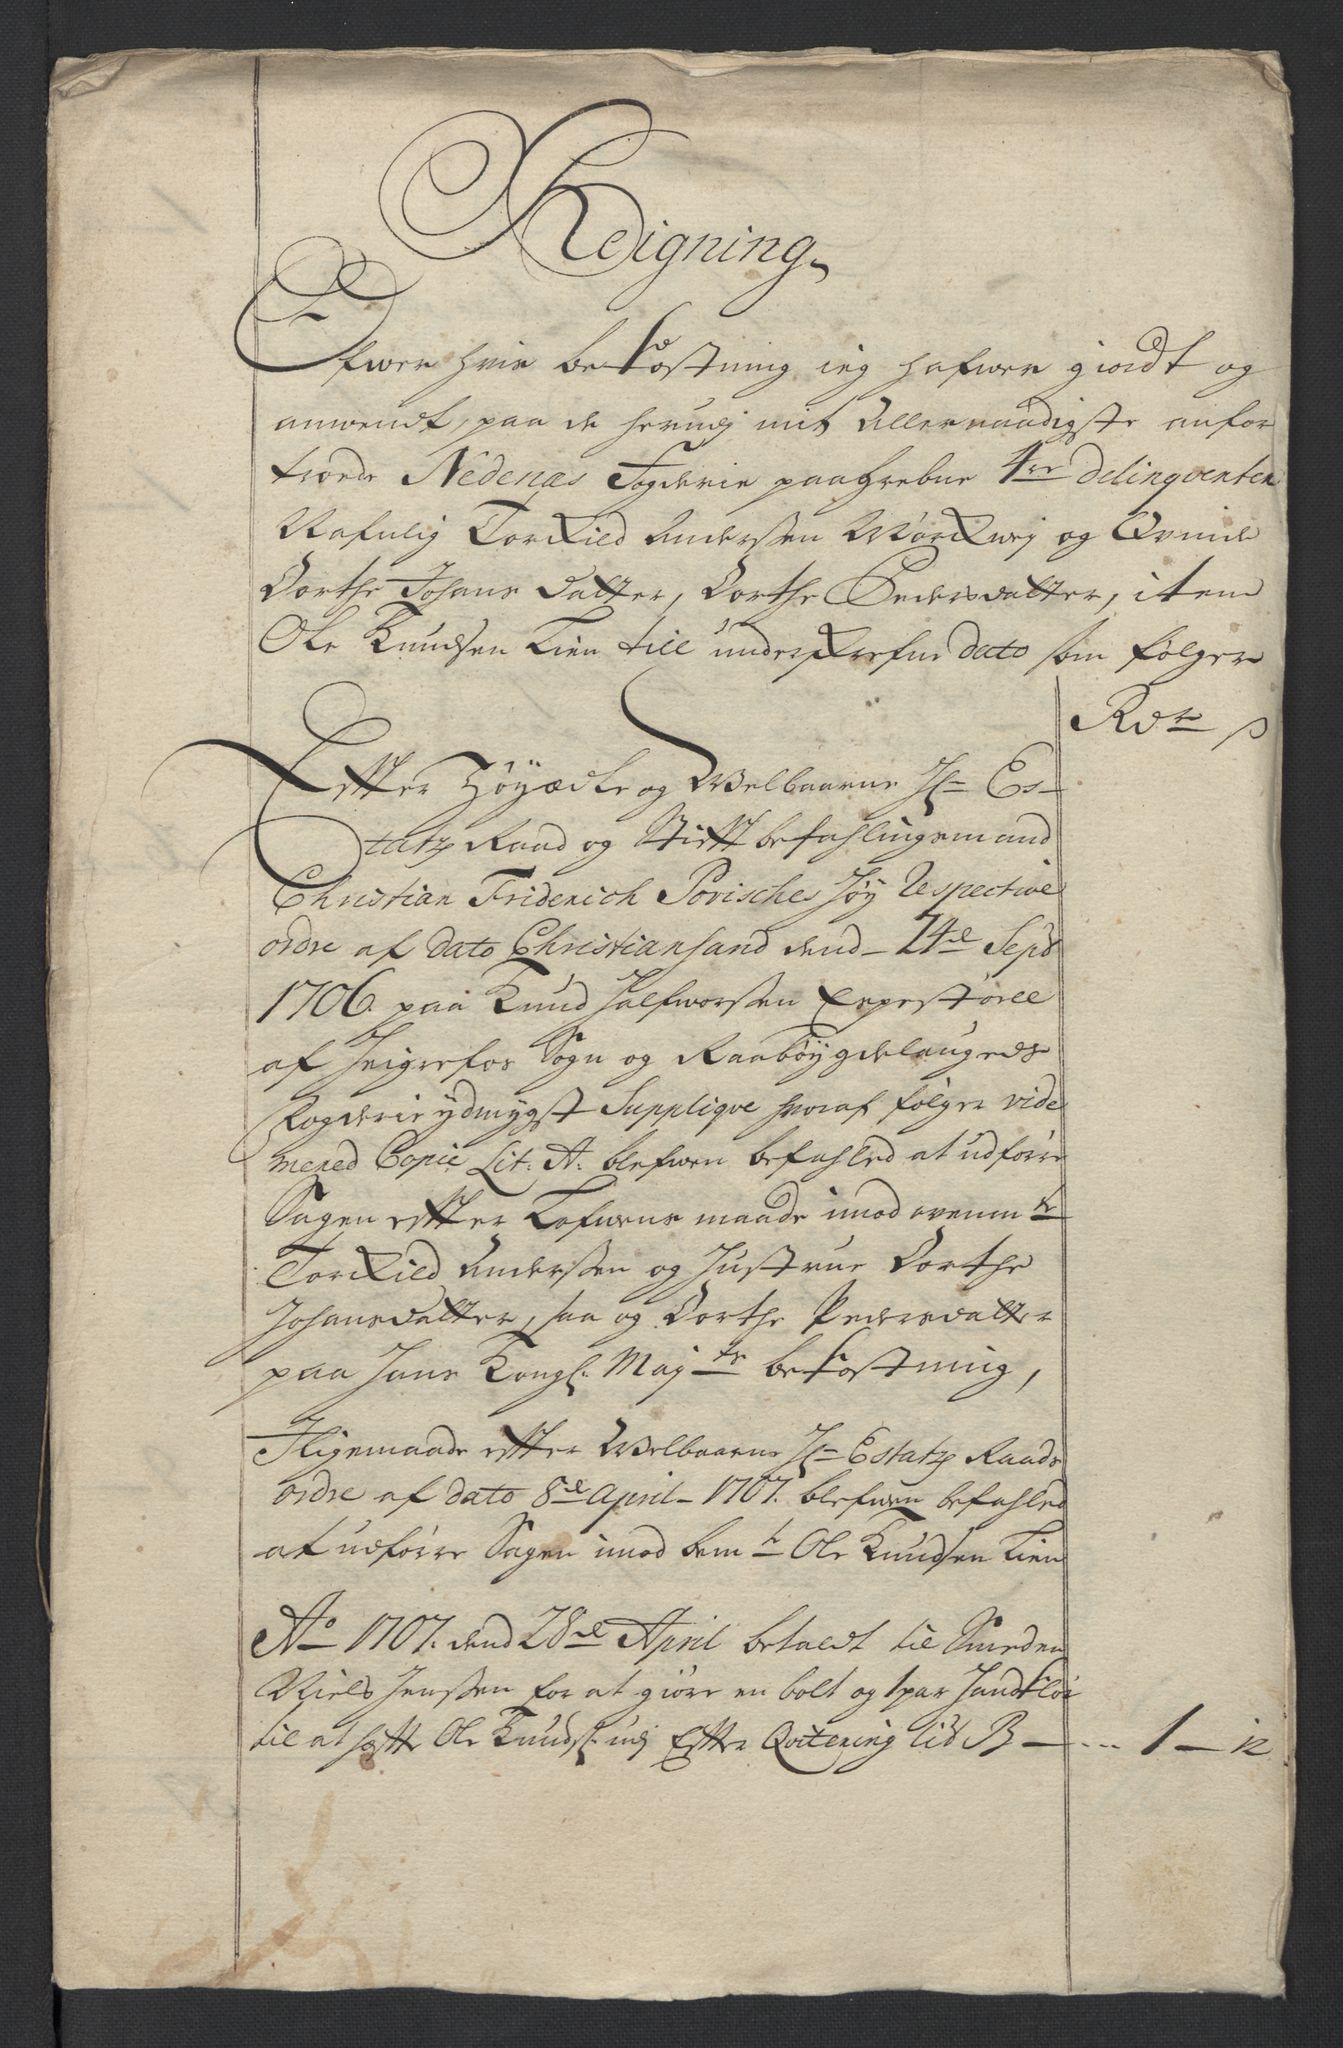 Reigning
Ofwer hvis bekostning ieg hafwer giordt og
anwendt, paa de herudj mit Allernaadigste anfor
troede Nedenæs Fogderie paagrebne 4re delinqventer
Nafnlig Torkild Anderssen Mørkwej og Qvinde
Dorthe Johans datter, Dorthe Pedersdatter, item
Ole Knudsen Lien till underskrefne dato som følger
Rdr ß
Efter Høyædle og Welbaarne Hr Es-
tatz Raad og Stiftbefahlingsmand
Christian Friderich Povisches høy Respective
ordre af dato Christiansand dend 24de Sept
1706. paa Knud Halfworssen Eepestøell
af Heigrefos Sogn og Raabøygdelaugeds
Fogderie ydmygst Supplique hvoraf følger vide
mered Copie Lit: A: blefwen befahled at udføre
Sagen efter Lofwens maade imod ovenmte
Torkild Anderssen og Hustrue Dorthe
Johansdatter, saa og Dorthe Pedersdatter
paa Hans Kongl. Majts bekostning,
Iligemaade efter Welbaarne Hr Estatz Raads
ordre af dato 8de April 1707. blefwen befahled
at udføre Sagen imod bemte Ole Knudsen Lien
Ao 1707. dend 28de April betaldt til Smeden
Niels Jenssen for at giøre en bolt og 1 par Handklør
til at sette Ole Knuds: udj Efter Qvitering Lid B — ... 1 — 12